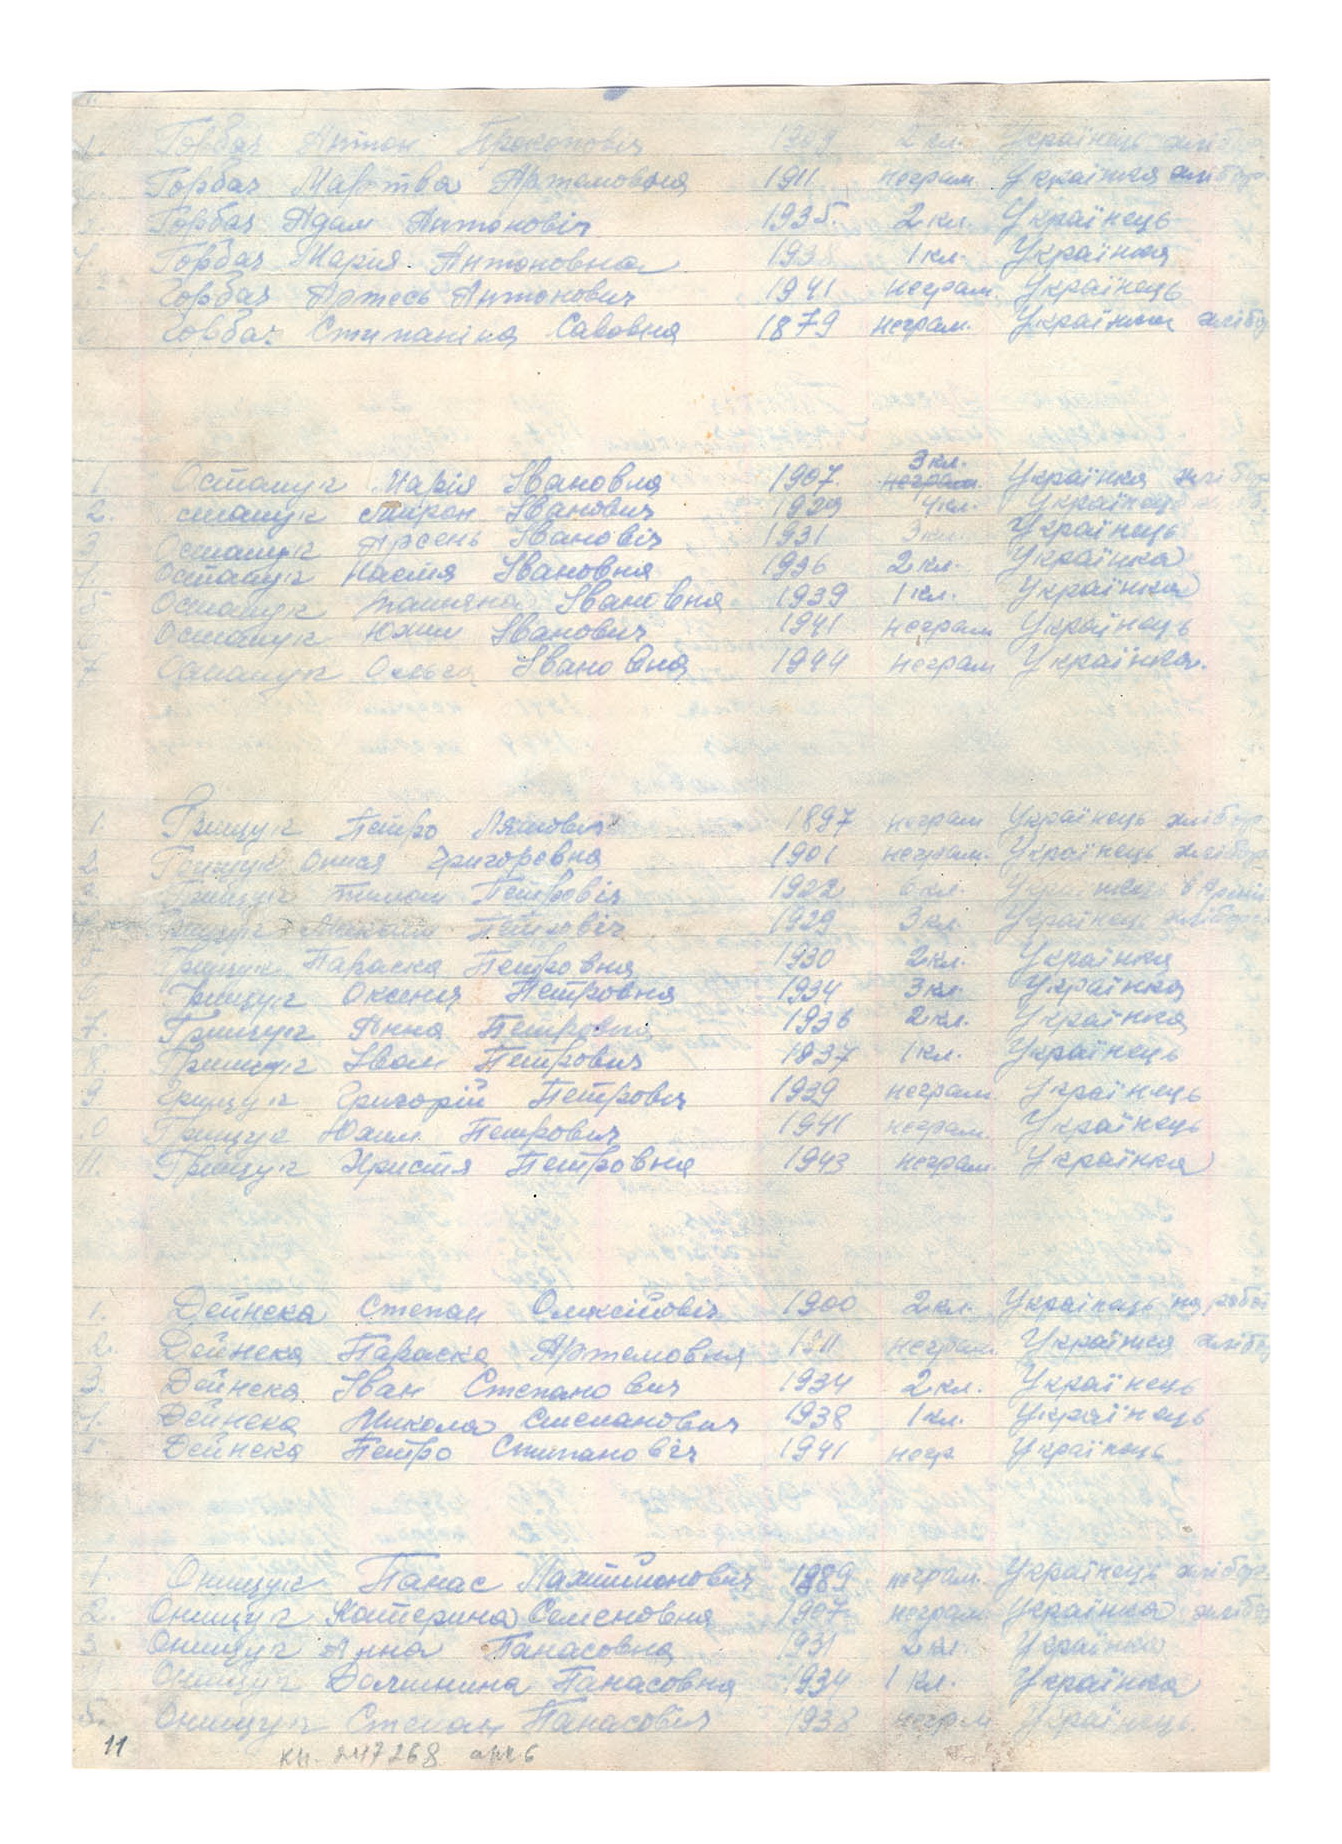 1. Горбач Антон Прокоповіч 1909 2 кл. Українець хлібор
Горбач Марта Артемовна 1911 неграм. Українка хлібор.
3. Горбач Адам Антоновіч 1935. 2 кл. Українець
4. Горбач Марія Антоновна 193 1 кл. Українка
Горбач Антонович 1941 неграм. Українець
Горбач Степаніда Савовна 1879 неграм. Українка хлібо
3 кл.
1. Остапук Марія Івановна 1907. неграм Українка хлібор
2. стапук Мирон Іванович 1929 4 кл. Українець хліб.
3. Остапук Арсень Івановіч 1931 3 кл. Українець
4. Остапук Настя Івановна 1936 2 кл. Українка
5. Остапук Татяна Івановна 1939 1 кл. Українка
6. Остапук Юхим Іванович 1941 неграм Українець
7 Остапук Ольга Івановна 1944 неграм Українка.
1. Грищук Петро 1897 неграм Українець хлібор
2. Грищук Григоровна 1901 неграм. Українець хлібор
3. Грищук Петровіч 1922 6 кл. Українець в Армії
Грищук Петровіч 1929 3 кл. Українец хлібор
5. Грищук Параска Петровна 1930 2 кл. Українка
6. Грищук Оксеня Петровна 1934 3 кл Українка
7. Грищук Анна Петровна 1936 2 кл. Українка
8. Грищук Іван Петрович 1937 1 кл. Українець
9 Грищук Григорій Петровіч 1939 неграм. Українець
10 Грищук Юхим Петрович 1941 неграм. Українець
11. Грищук Христя Петровна 1943 неграм. Українка
1. Дейнека Степан Олексійовіч 1900 2 кл. Українець на робот
2. Дейнека Параска Артемовна 1911 неграм. Українка хлібор
3. Дейнека Іван Степанович 1934 2 кл. Українець
4. Дейнека Микола Степанович 1938 1 кл. Українець
5 Дейнека Петро Степановіч 1941 негр. Українець
1. Онищук Панас 1889 неграм. Українець хлібор.
2. Онищук Катерина Семеновна 1907 неграм. Українка хлібор
3. Онищук Анна Панасовна 1931 2 кл. Українка
Онищук Панасовна 1934 1 кл. Українка
5. Онищук Степан Панасович 1938 неграм Українець.
11 КН-247268 арк 6